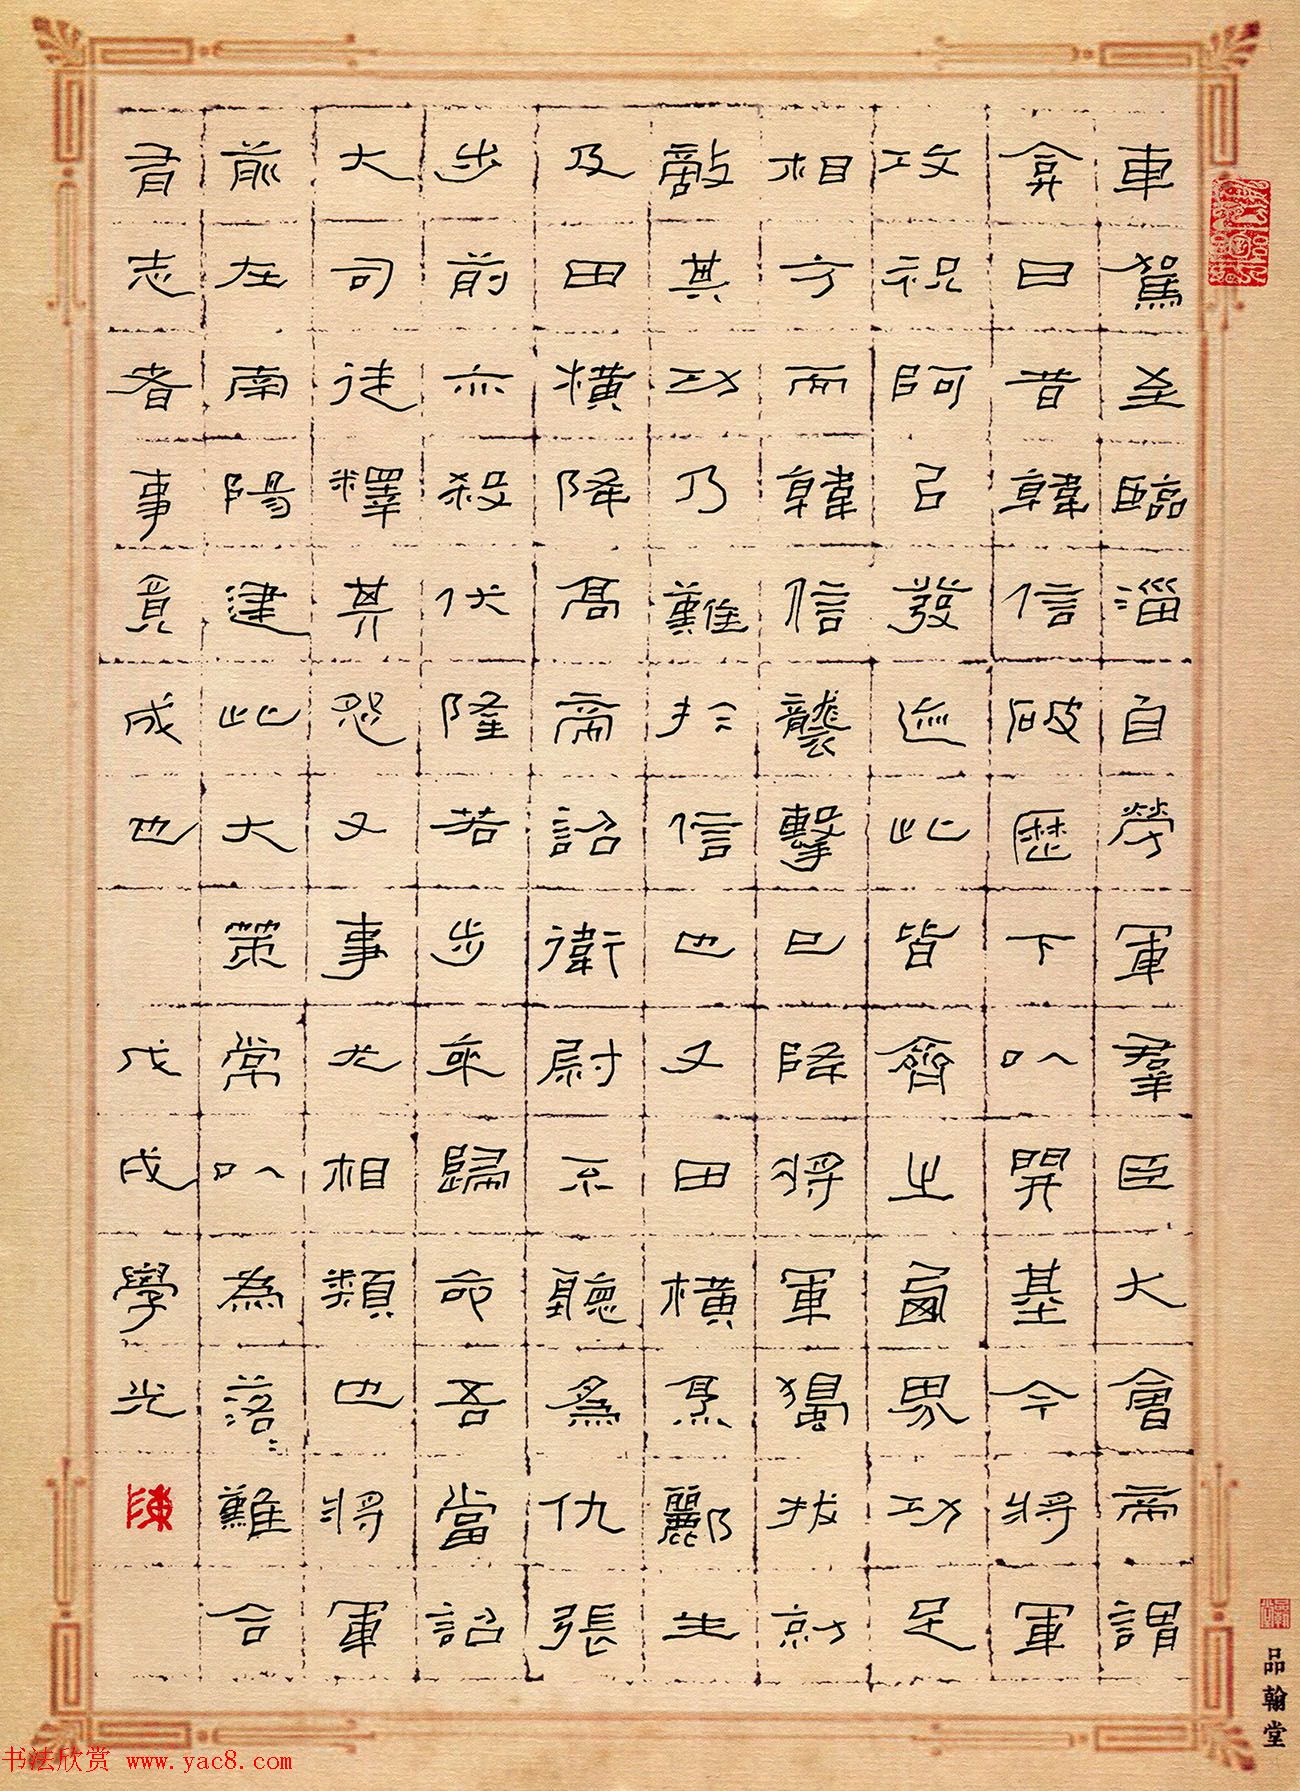 車駕至臨淄自勞軍羣臣大會帝謂
弇曰昔韓信破歷下以開基今將軍
攻祝阿以發迹此皆齊之西界功足
相方而韓信襲擊已降將軍獨拔勍
敵其功乃難於信也又田橫烹酈生
及田橫降高帝詔衛尉不聽為仇張
步前亦殺伏隆若步來歸命吾當詔
大司徒釋其怨又事尤相類也將軍
前在南陽建此大策常以為落落難合
有志者事竟成也 戊戌學光 陳
品翰堂
书法欣赏 www.yac8.com